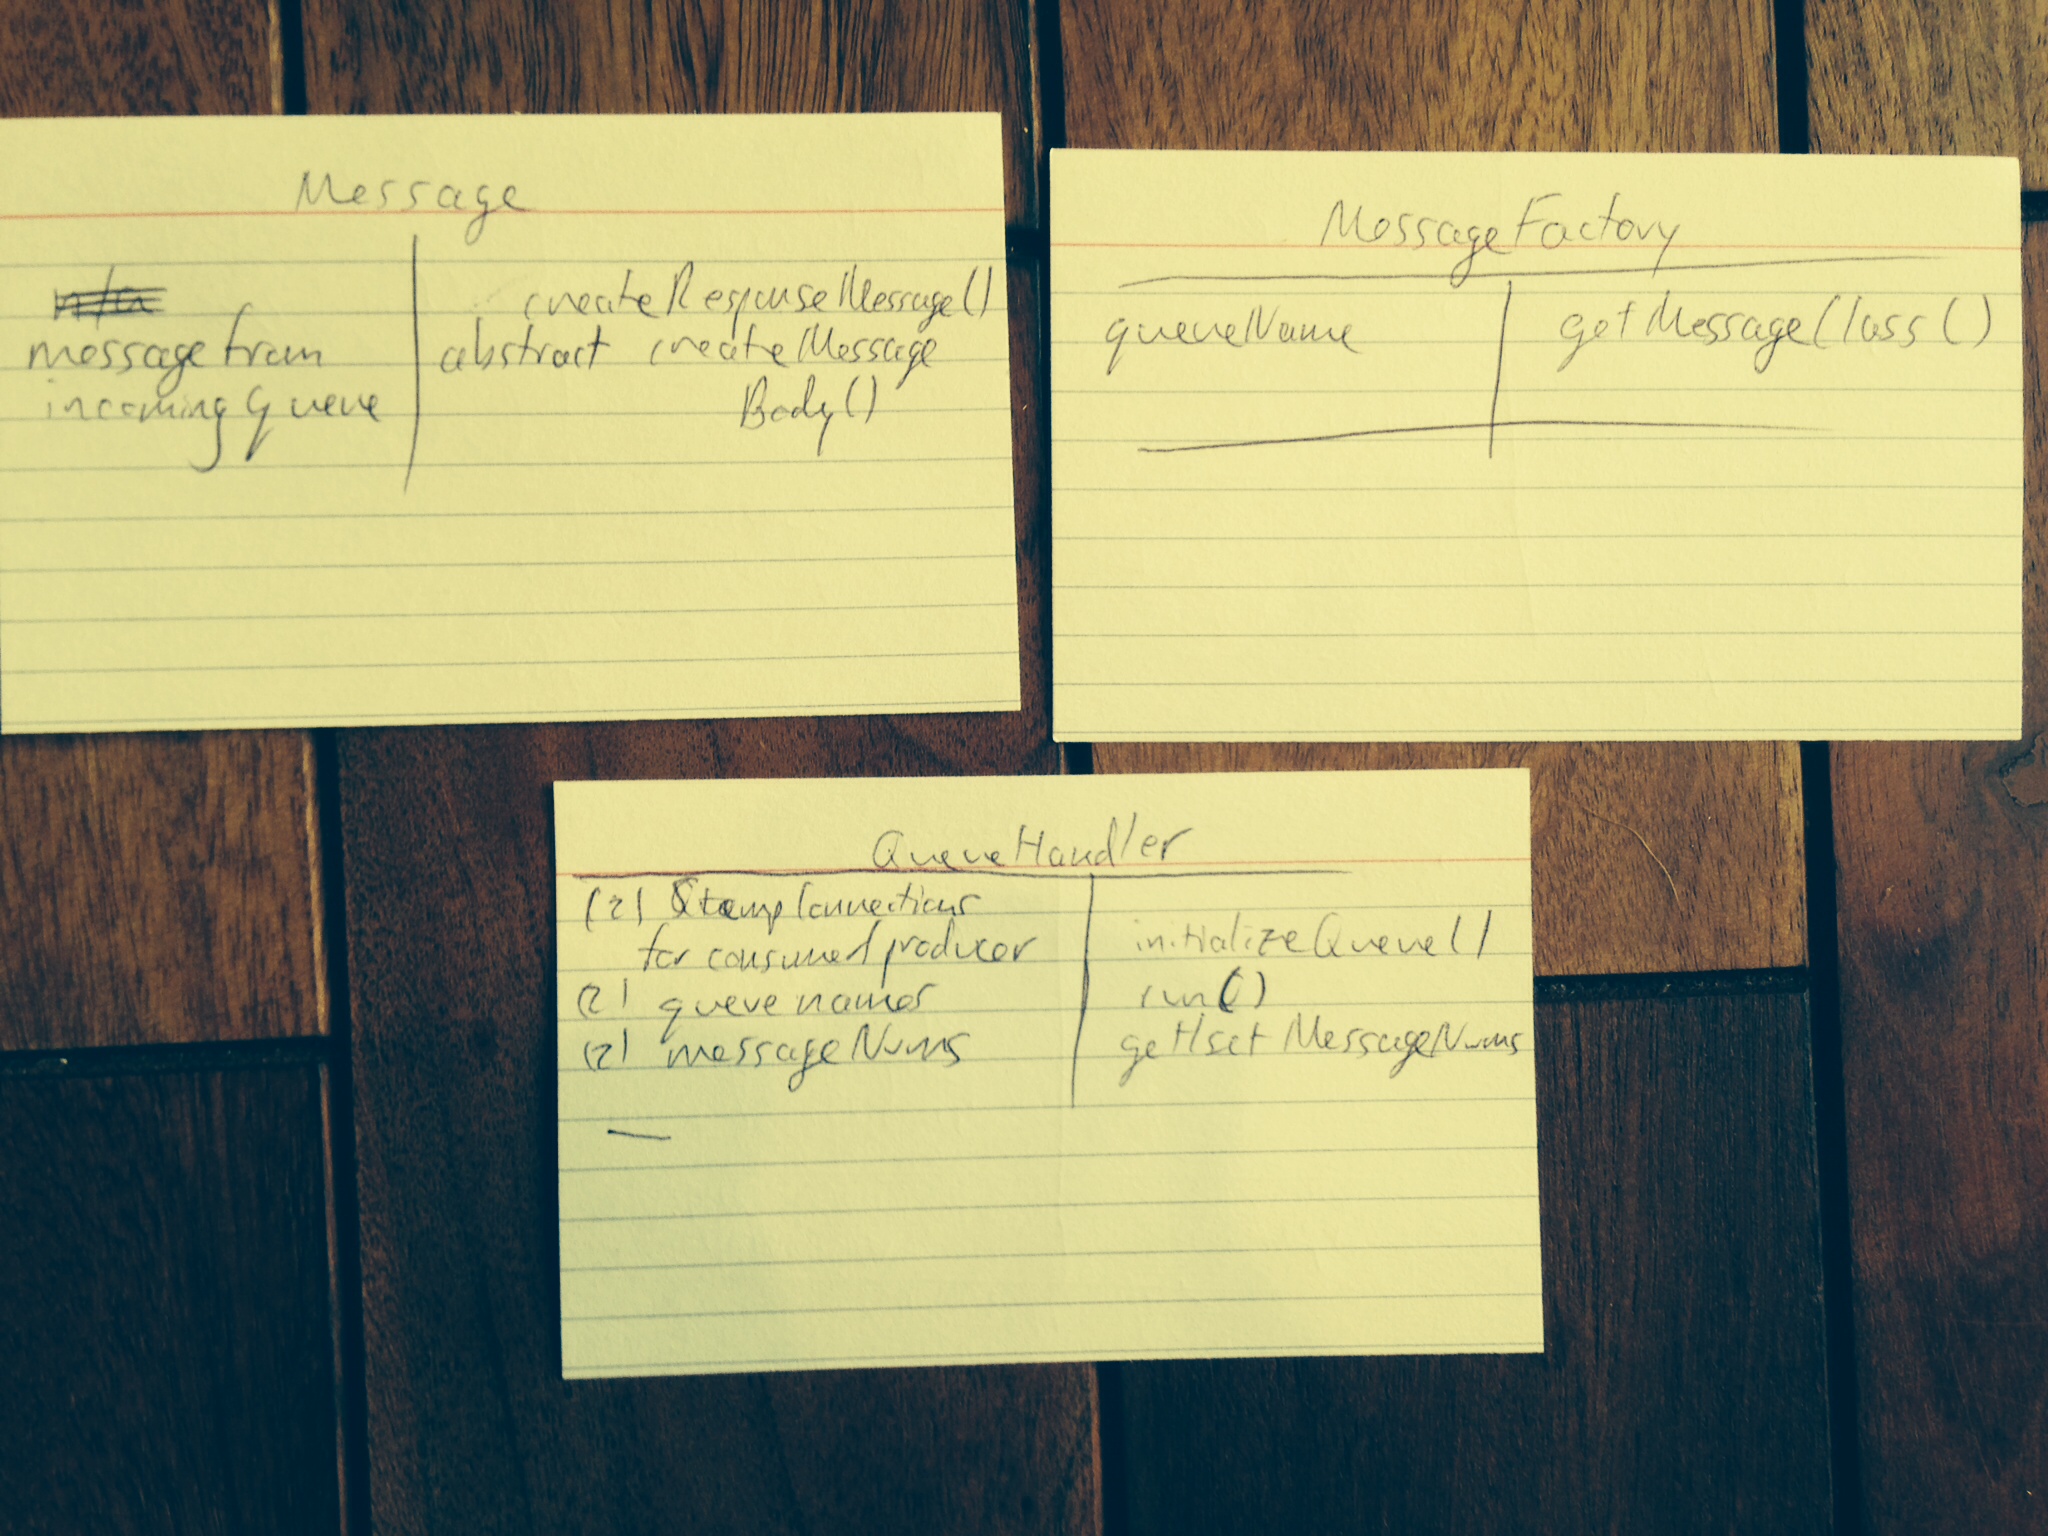 Message
n/a
message from
incoming queue
createResponseMessage()
abstract createMessage
Body()
MessageFactory
queueName
getMessageClass()
QueueHandler
(2) StompConnections
for consumer/producer
(2) queue names
(2) messageNums
initializeQueue()
run()
get/set MessageNums